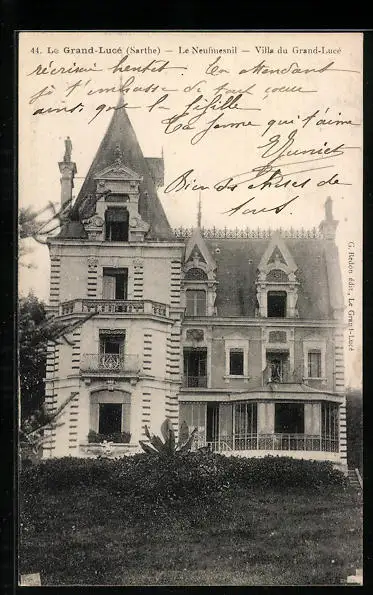 44. Le Grand-Lucé (Sarthe) — Le Neufmesnil — Villa du Grand-Lucé
récrirai bientot
En attendant
je t'embrasse de tout coeur
ainsi que la fifille
Ta femme qui t'aime
Bien des choses de
tous
G. Redon édit., Le Grand-Lucé